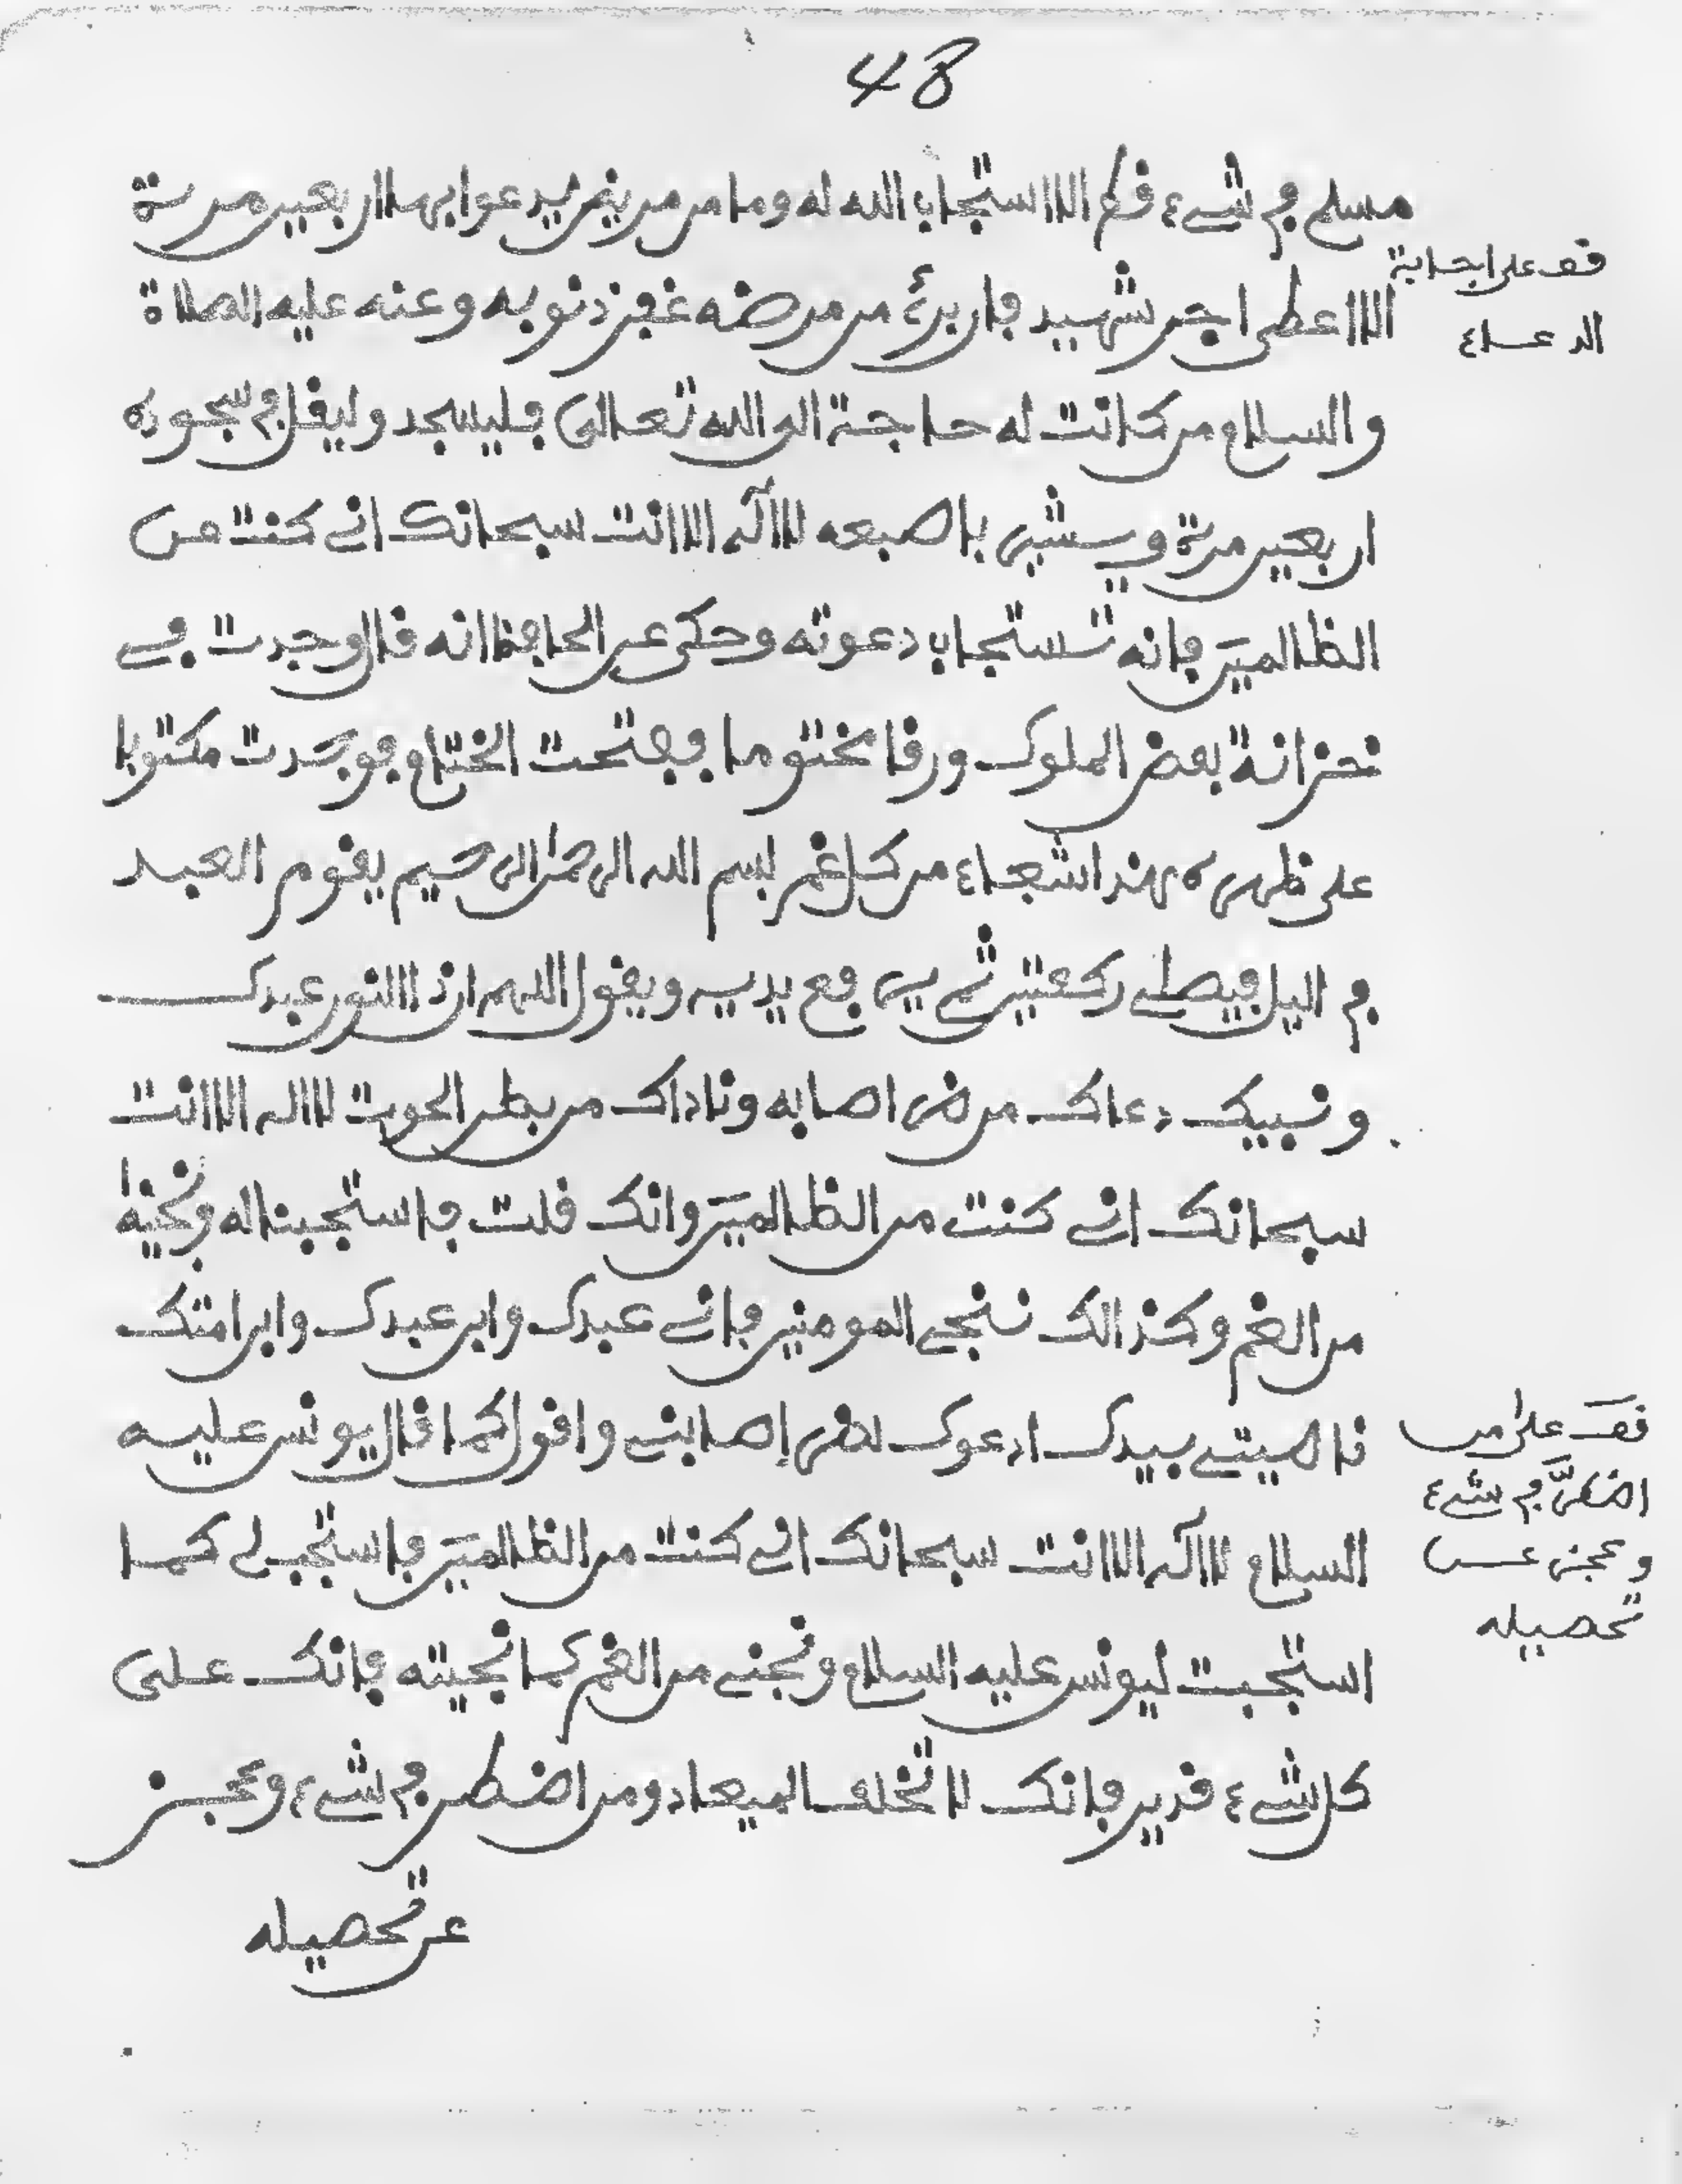 48
مسلم في شيء قط الا استجاب الله له وما من مريض يدعوا بها اربعين مرة
قف على اجابة
الدعاء
الا اعطى اجر شهيد فان برئ من مرضه غفر ذنوبه وعنه عليه الصلاة
والسلام من كانت له حاجة الى الله تعالى فليسجد وليقل في سجوده
اربعين مرة ويشير باصبعه لا اله الا انت سبحانك اني كنت من
الظالمين فانه تستجاب دعوته وحكى عن الحافظ انه قال وجدت في
خزانة بعض الملوك ورقا مختوما ففتحت الختام فوجدت مكتوبا
على ظهره هذا شفاء من كل غم بسم الله الرحمن الرحيم يقوم العبد
في اليل فيصلي ركعتين ثم يرفع يديه ويقول اللهم ان ذا النور عبدك
ونبيك دعاك من ضر اصابه وناداك من بطن الحوت لا اله الا انت
سبحانك اني كنت من الظالمين وانك قلت فاستجبنا له ونجينه
من الغم وكذالك ننجي المومنين فاني عبدك وابن عبدك وابن امتك
ناصيتي بيدك ادعوك لضر إصابني واقول كما قال يونس عليه
قف على من
اضطرّ في شيء
وعجز عن
تحصيله
السلام لا اله الا انت سبحانك اني كنت من الظالمين فاستجب لي كما
استجبت ليونس عليه السلام ونجني من الغم كما انجيته فانك على
كل شيء قدير فانك لا تخلف الميعاد ومن اضطر في شيء وعجز
عن تحصيله